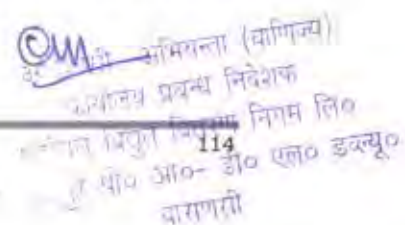 अभियन्ता (वाणिज्य)
कार्यालय प्रबन्ध निदेशक
विद्युत वितरण निगम लि०
114
पो० आ०- डी० एल० डब्ल्यू०
वाराणसी